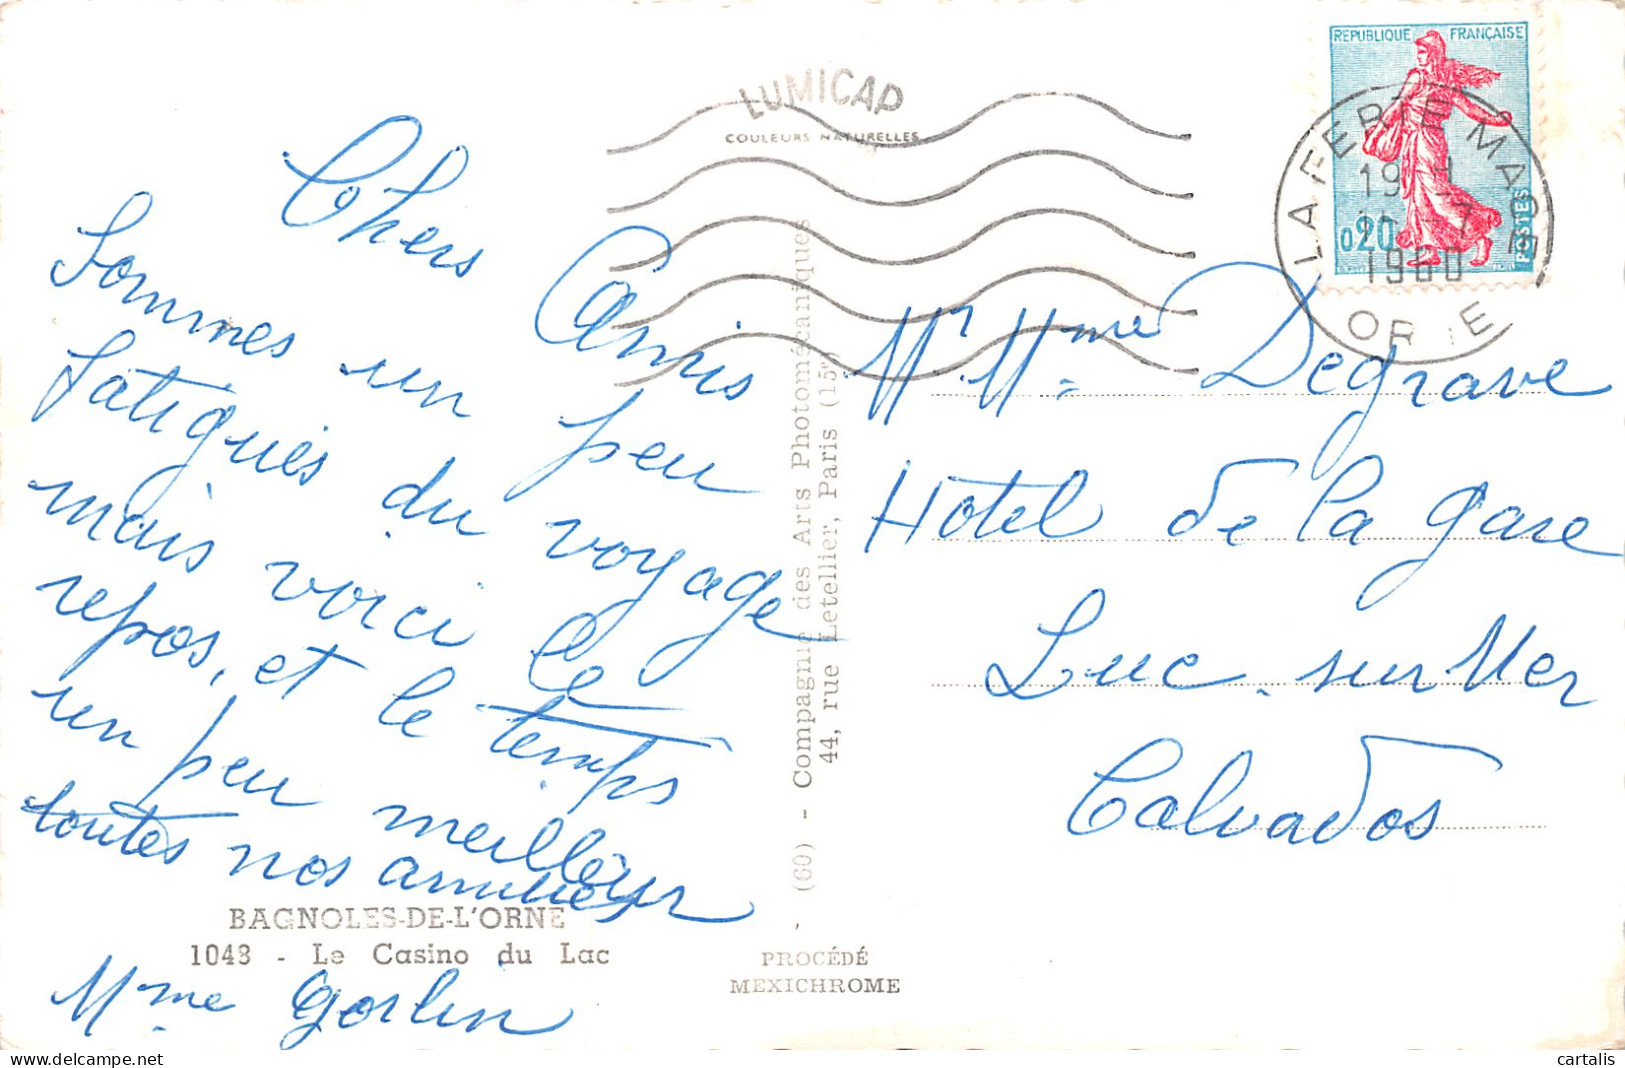 LUMICAP
COULEURS NATURELLES
REPUBLIQUE FRANÇAISE
0,20
POSTES
LA FERTE MACE
19 H
11 -7
1960
ORNE
Chers Amis
Sommes un peu
fatigués du voyage
mais voici le
repos, et le temps
un peu meilleur
toutes nos amitiés
Mme Gorlin
BAGNOLES-DE-L'ORNE
1043 - Le Casino du Lac
(60) - Compagnie des Arts Photomécaniques
44, rue Letellier, Paris (15e)
PROCÉDÉ
MEXICHROME
Mr Mme Degrave
Hôtel de la gare
Luc-sur Mer
Calvados
cartalis